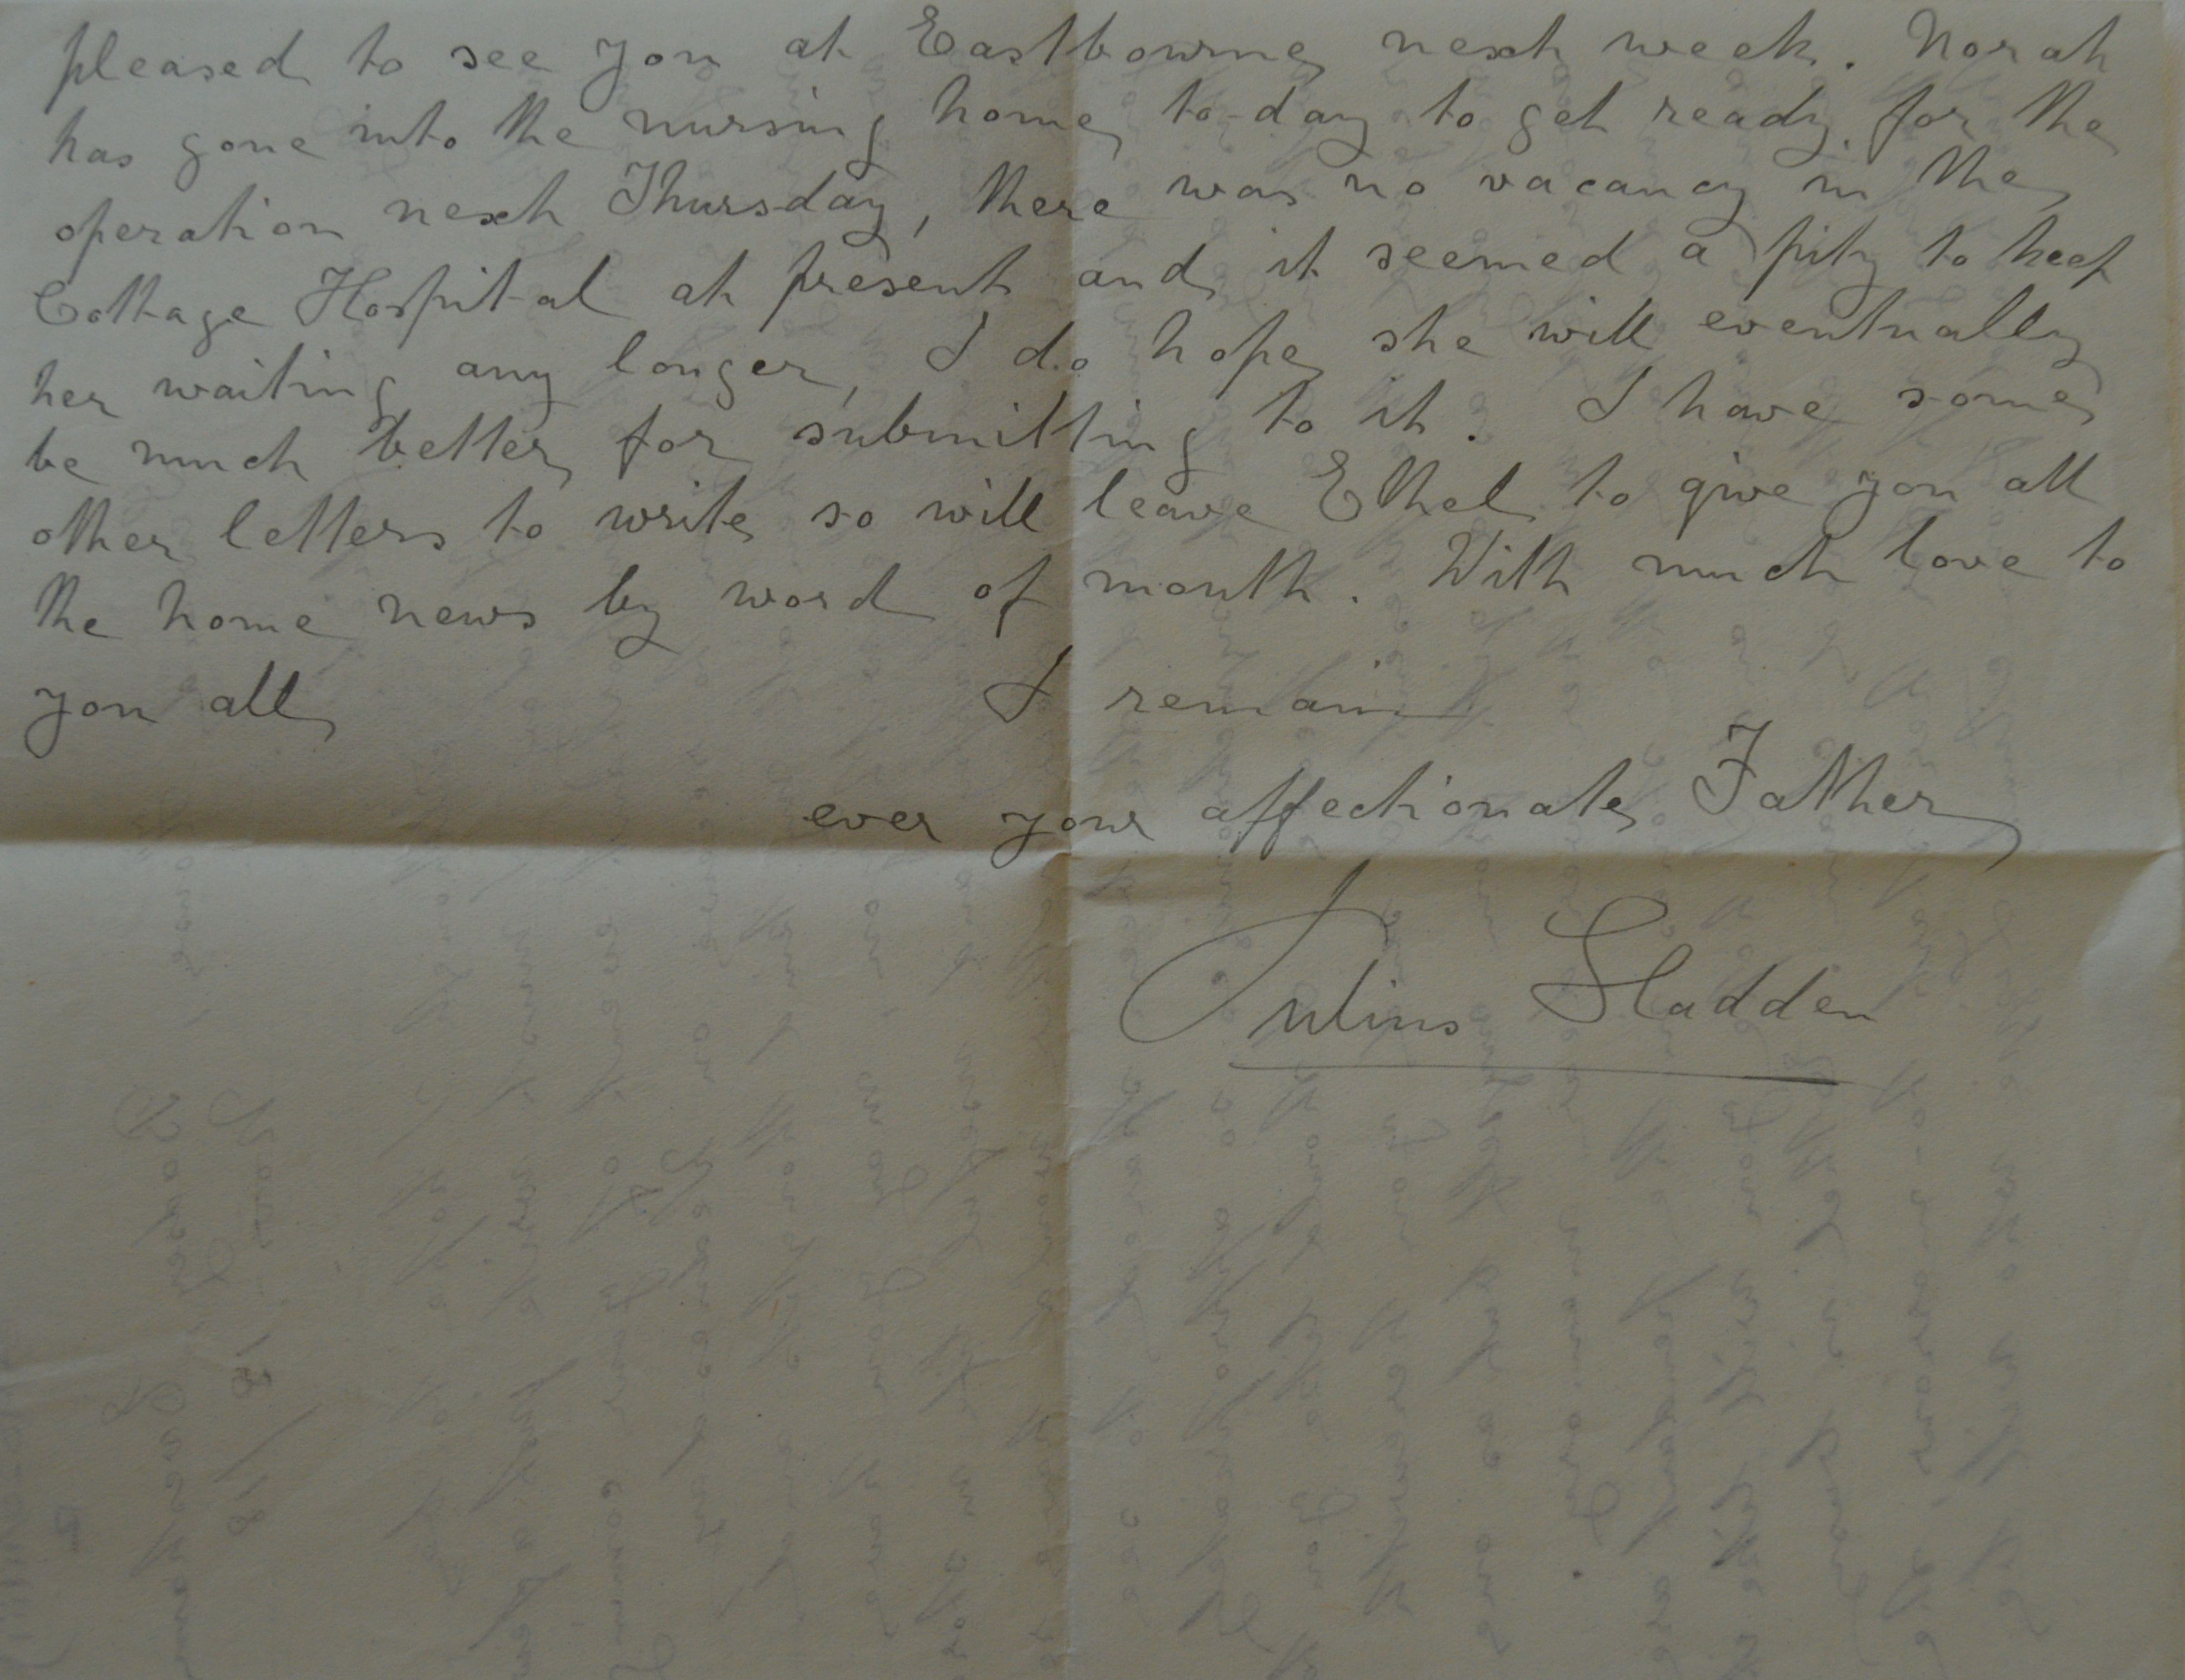 pleased to see you at Eastbourne next week. Norah
has gone into the nursing home to-day to get ready for the
operation next Thursday, there was no vacancy in the
Cottage Hospital at present and it seemed a pity to keep
her waiting any longer, I do hope she will eventually
be much better for submitting to it. I have some
other letters to write so will leave Ethel to give you all
the home news by word of mouth. With much love to
you all I remain
ever your affectionate Father
Julius Sladden